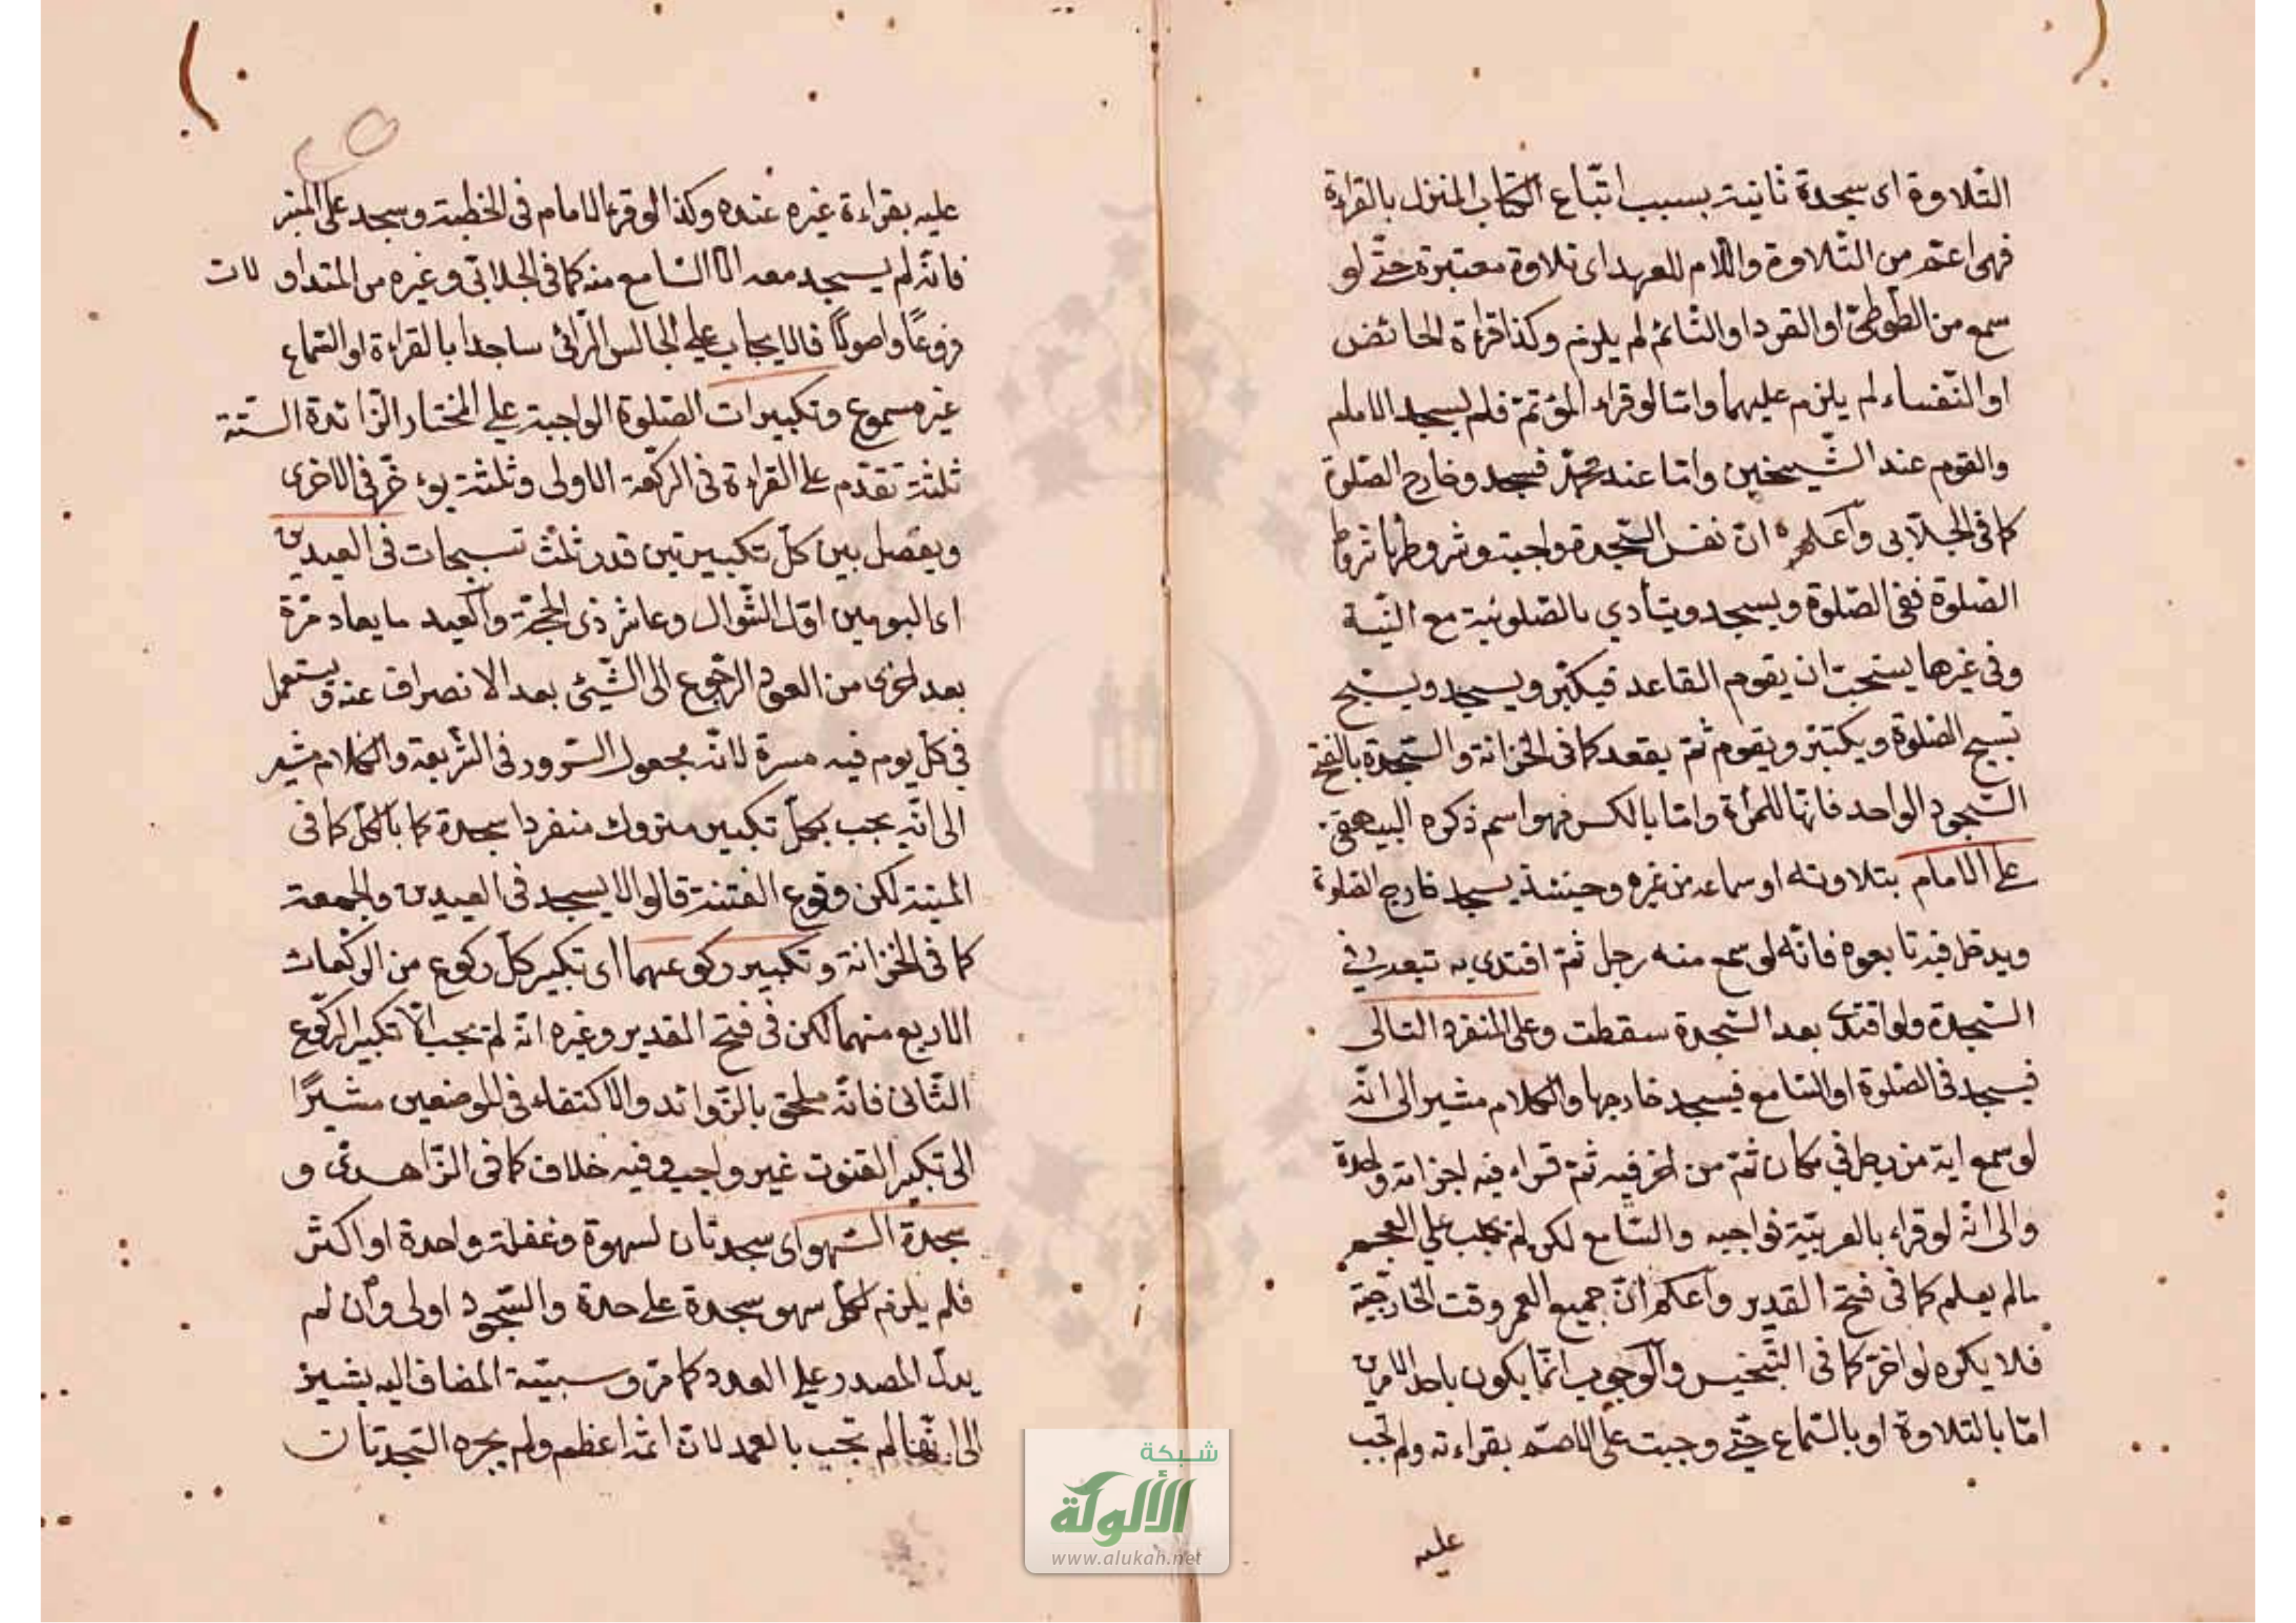 التّلاوة اى سجدة ثانية بسبب اتّباع الكتاب المنزل بالقراءة
فهى اعمّ من التّلاوة واللام للعهد اى تلاوة معتبرة حتّى لو
سمع من الطّوطىّ او القرد او النّائم لم يلزم وكذا قراءة الحائض
او النّفساء لم يلزم عليهما وامّا لو قراء المؤتمّ فلم يسجد الامام
والقوم عند الشّيخين وامّا عند محمّد فيسجد وخارج الصّلوة
كما فى الجلّابى وآعلم انّ نفس السّجدة واجبة وشروطها شروط
الصّلوة ففى الصّلوة ويسجد ويتأدي بالصّلوتية مع النّيّة
وفى غيرها يستحبّ ان يقوم القاعد فيكبّر ويسجد ويسبّح
تسبيح الصّلوة ويكبّر ويقوم ثمّ يقعد كما فى الخزانة والسّجدة بالفتح
السّجود الواحد فانّها للمرّة وامّا بالكسر فهو اسم ذكره البيهقى
على الامام بتلاوته او سماعه من غيره وحينئذ يسجد خارج الصّلوة
ويدخل فيه تابعوه فانّه لو سمع منه رجل ثمّ اقتدى به تبعه فى
السّجدة ولو اقتدى بعد السّجدة سقطت وعلى المنفرد التالى
فيسجد فى الصّلوة او السّامع فيسجد خارجها والكلام مشير الى انّه
لو سمع اية من رجل فى مكان ثمّ من اخر فيه ثمّ قراء فيه اجزاته واحدة
والى انّه لو قراء بالعربيّة فواجبه والسّامع لكن لم يجب على العجم
مالم يعلم كما فى فتح القدير وآعلم انّ جميع العمر وقت الخارجيّة
فلا يكره لو اخرّ كما فى التّجنيس والوجوب انّما يكون باحد الامرين
امّا بالتلاوة او بالسّماع حتّى وجبت على الاصمّ بقراءته ولم تجب
عليه
عليه بقراءة غيره عنده وكذا لو قرء الامام فى الخطبة وسجد على المنبر
فانّه لم يسجد معه الّا السّامع منه كما فى الجلابّى وغيره من المتداولات
فروعًا واصولًا فلا يجاب على الجالس الرّائى ساجدا بالقراءة او السّماع
غير مسموع وتكبيرات الصّلوة الواجبة على المختار الزّائدة السّتّة
ثلثة تقدّم على القراءة فى الركعة الاولى وثلثة يؤخّر فى الاخرى
ويفصل بين كلّ تكبيرتين قدر ثلث تسبيحات فى العيدين
اى اليومين اوّل الشّوال وعاشر ذى الحجّة وآلعيد ما يعاد مرّة
بعد اخرى من العود الرّجوع الى الشّيئ بعد الانصراف عنه ويستعمل
فى كلّ يوم فيه مسرة لانّه مجعول السّرور فى الشّريعة والكلام مشير
الى انّه يجب بكلّ تكبير متروك منفردا سجدة كما بالكلّ كما فى
المنية لكن وقوع الفتنة قالوا لا يسجد فى العيدين والجمعة
كما فى الخزانة وتكبير ركوعهما اى تكبير كلّ ركوع من الرّكعات
الاربع منهما لكن فى فتح القدير وغيره انّه لم يجب الّا تكبير الرّكوع
الثّانى فانّه ملحق بالزّوائد والاكتفاء فى الموضعين مشيرًا
الى تكبير القنوت غير واجب وفيه خلاف كما فى الزّاهدىّ و
سجدة السّهو اى سجدتان لسهوة وغفلة واحدة او اكثر
فلم يلزم لكلّ سهو سجدة على حدة والسّجود اولى وآن لم
يدلّ المصدر على العدد كما مرّ وسببيّة المضاف اليه يشير
الى انّها لم تجب بالعمد لانّ اثمه اعظم ولم يجبره السّجدتان
شبكة
الألوكة
www.alukah.net